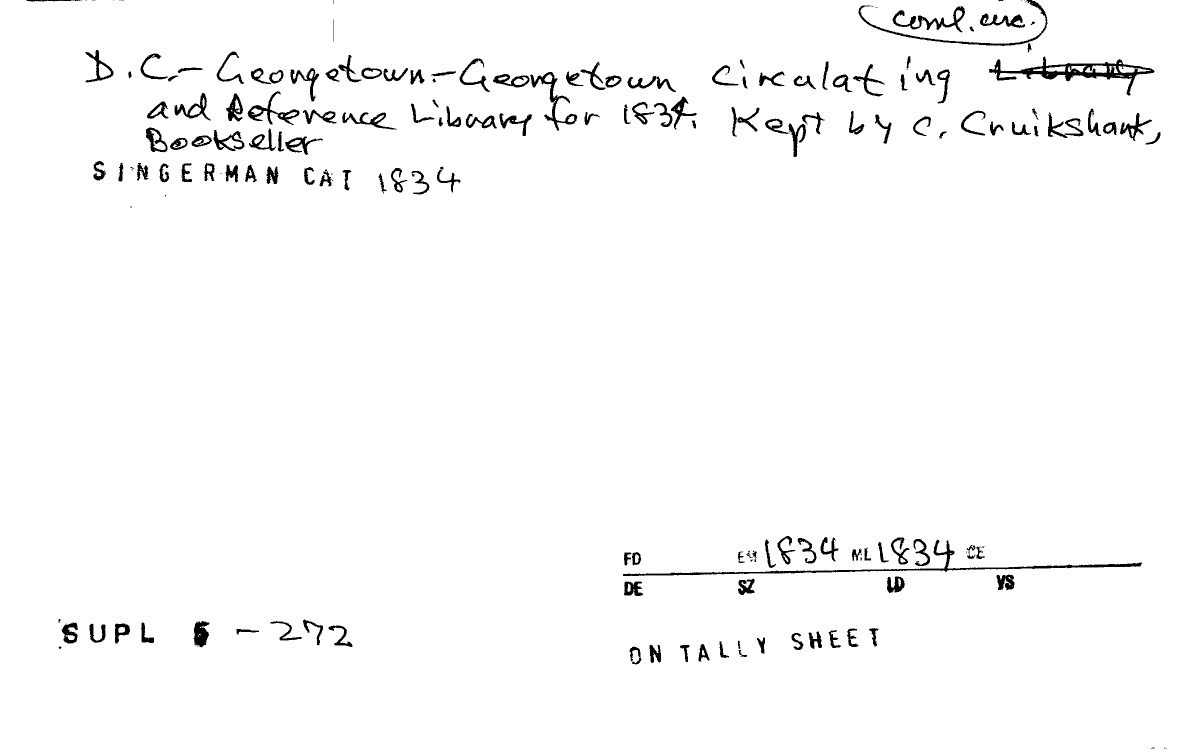 coml. circ.
D.C.- Georgetown.-Georgetown Circulating Library
and Reference Library for 1834. Kept by C. Cruikshank,
Bookseller
SINGERMAN CAT 1834
FD EM 1834 ML 1834 CE
DE SZ LD VS
SUPL 5 -272
ON TALLY SHEET